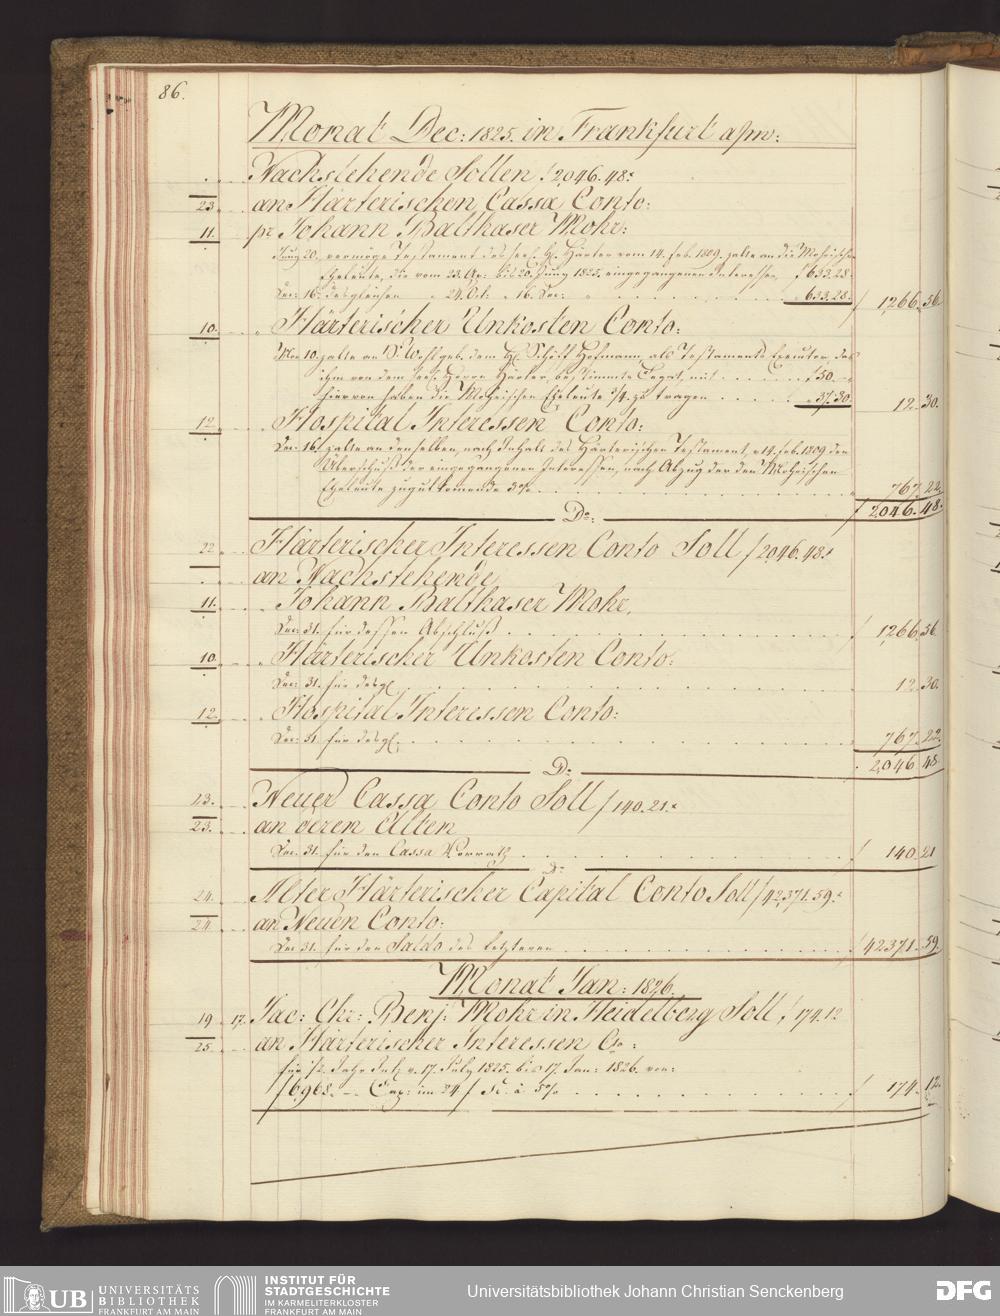 86.
Monat Dec: 1825. in Frankfurt a/m:
Nachstehende Sollen f 2046.48x
23. an Härterischen Cassa Conto:
11. pr Johann Balthaser Mohr:
Juny 20. vermöge Testament des seel. H. Härter vom 14. feb. 1809. zalte an die Mohrischen
Eheleute, die vom 23. Ap: bis 20. Juny 1825. eingegangenen Interessen f 633.28.
Dec: 16. desgleichen " 24. Oct. " 16. Dec: " " 633.28. f 1266.56.
10. " Härterischer Unkosten Conto:
10. zalte an Sr. Wohlgeb. dem H. Schöff Hofmann, als Testaments Executor, das
ihm von dem seel. Herrn Härter, bestimmte Legat, mit f 50. –
hiervon haben die Mohrischen Eheleute 3/4 zu tragen " 37.30. 12.30.
12. " Hospital Interessen Conto:
Dec: 16. zalte an denselben, nach Inhalt des Härterischen Testament, v 14. feb. 1809 den
Überschuß der eingegangenen Interessen, nach Abzug der den Mohrischen
Eheleute zugutkomende 3% " 767.22.
f 2046.48.
Do:
22. Härterischer Interessen Conto Soll f 2046.48x
an Nachstehende
11. " Johann Balthaser Mohr,
Dec: 31. für dessen Abschluß f 1266.56.
10. " Härterischer Unkosten Conto:
Dec: 31. für desgl. 12.30.
12. " Hospital Interessen Conto:
Dec: 31. für desgl. " 767.22.
2046.48.
Do:
23. Neuer Cassa Conto Soll f 140.21.x
23. an deren Alten
Dec. 31. für den Cassa Vorrath f 140.21
Do
24. Alter Härterischer Capital Conto Soll f 42371.59.x
24. an Neuen Conto:
Dec 31. für den Saldo des letzteren f 42371.59.
Monat Jan: 1826.
19 17. Jac: Chr: Benj: Mohr in Heidelberg Soll f 174.12
25. an Härterischer Interessen Co:
für 1/2 Jahr v. 17. July 1825. bis 17. Jan: 1826. von:
f 6968. – Cap: im 24 f à 5% f 174.12.
UB UNIVERSITÄTS
BIBLIOTHEK
FRANKFURT AM MAIN
INSTITUT FÜR
STADTGESCHICHTE
IM KARMELITERKLOSTER
FRANKFURT AM MAIN
Universitätsbibliothek Johann Christian Senckenberg
DFG